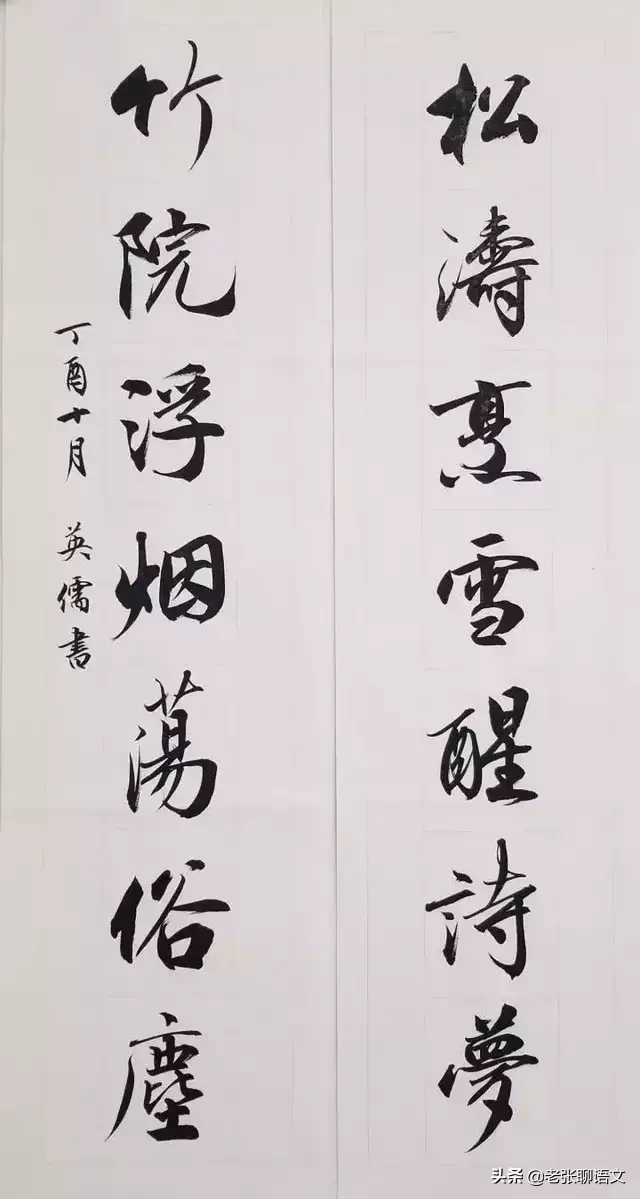 松濤烹雪醒詩夢
竹院浮烟蕩俗塵
丁酉十月 英儒書
头条 @老张聊语文